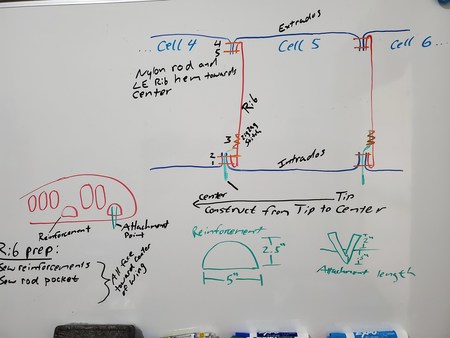 Extrados
... Cell 4
4
5
Cell 5
Cell 6 ...
Nylon rod and
LE Rib hem towards
center
Rib
3
zigzag
stitch
2
1
Intrados
center
Tip
Construct from Tip to Center
Reinforcement
Attachment
Point
Rib prep:
Sew reinforcements
Sew rod pocket
All face
toward center
of wing
Reinforcement
2.5"
5"
Attachment length